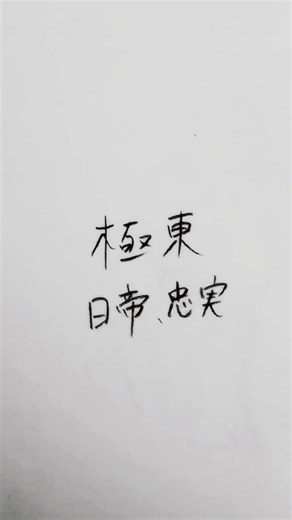 極東
日帝、忠実